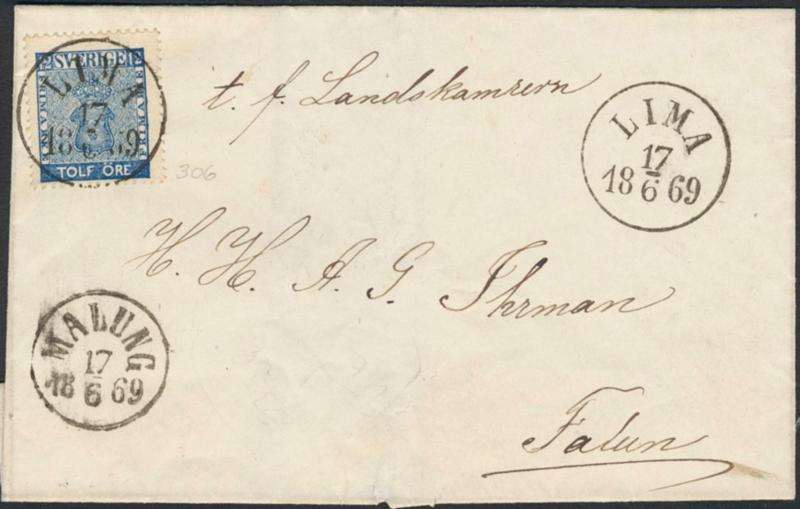 SVERIGE
FRIMÄRKE
TOLF ÖRE
LIMA
17
18 6 69
306
t. f. Landskamrern
LIMA
17
18 6 69
H. H. A. G. Ihrman
MALUNG
17
18 6 69
Falun